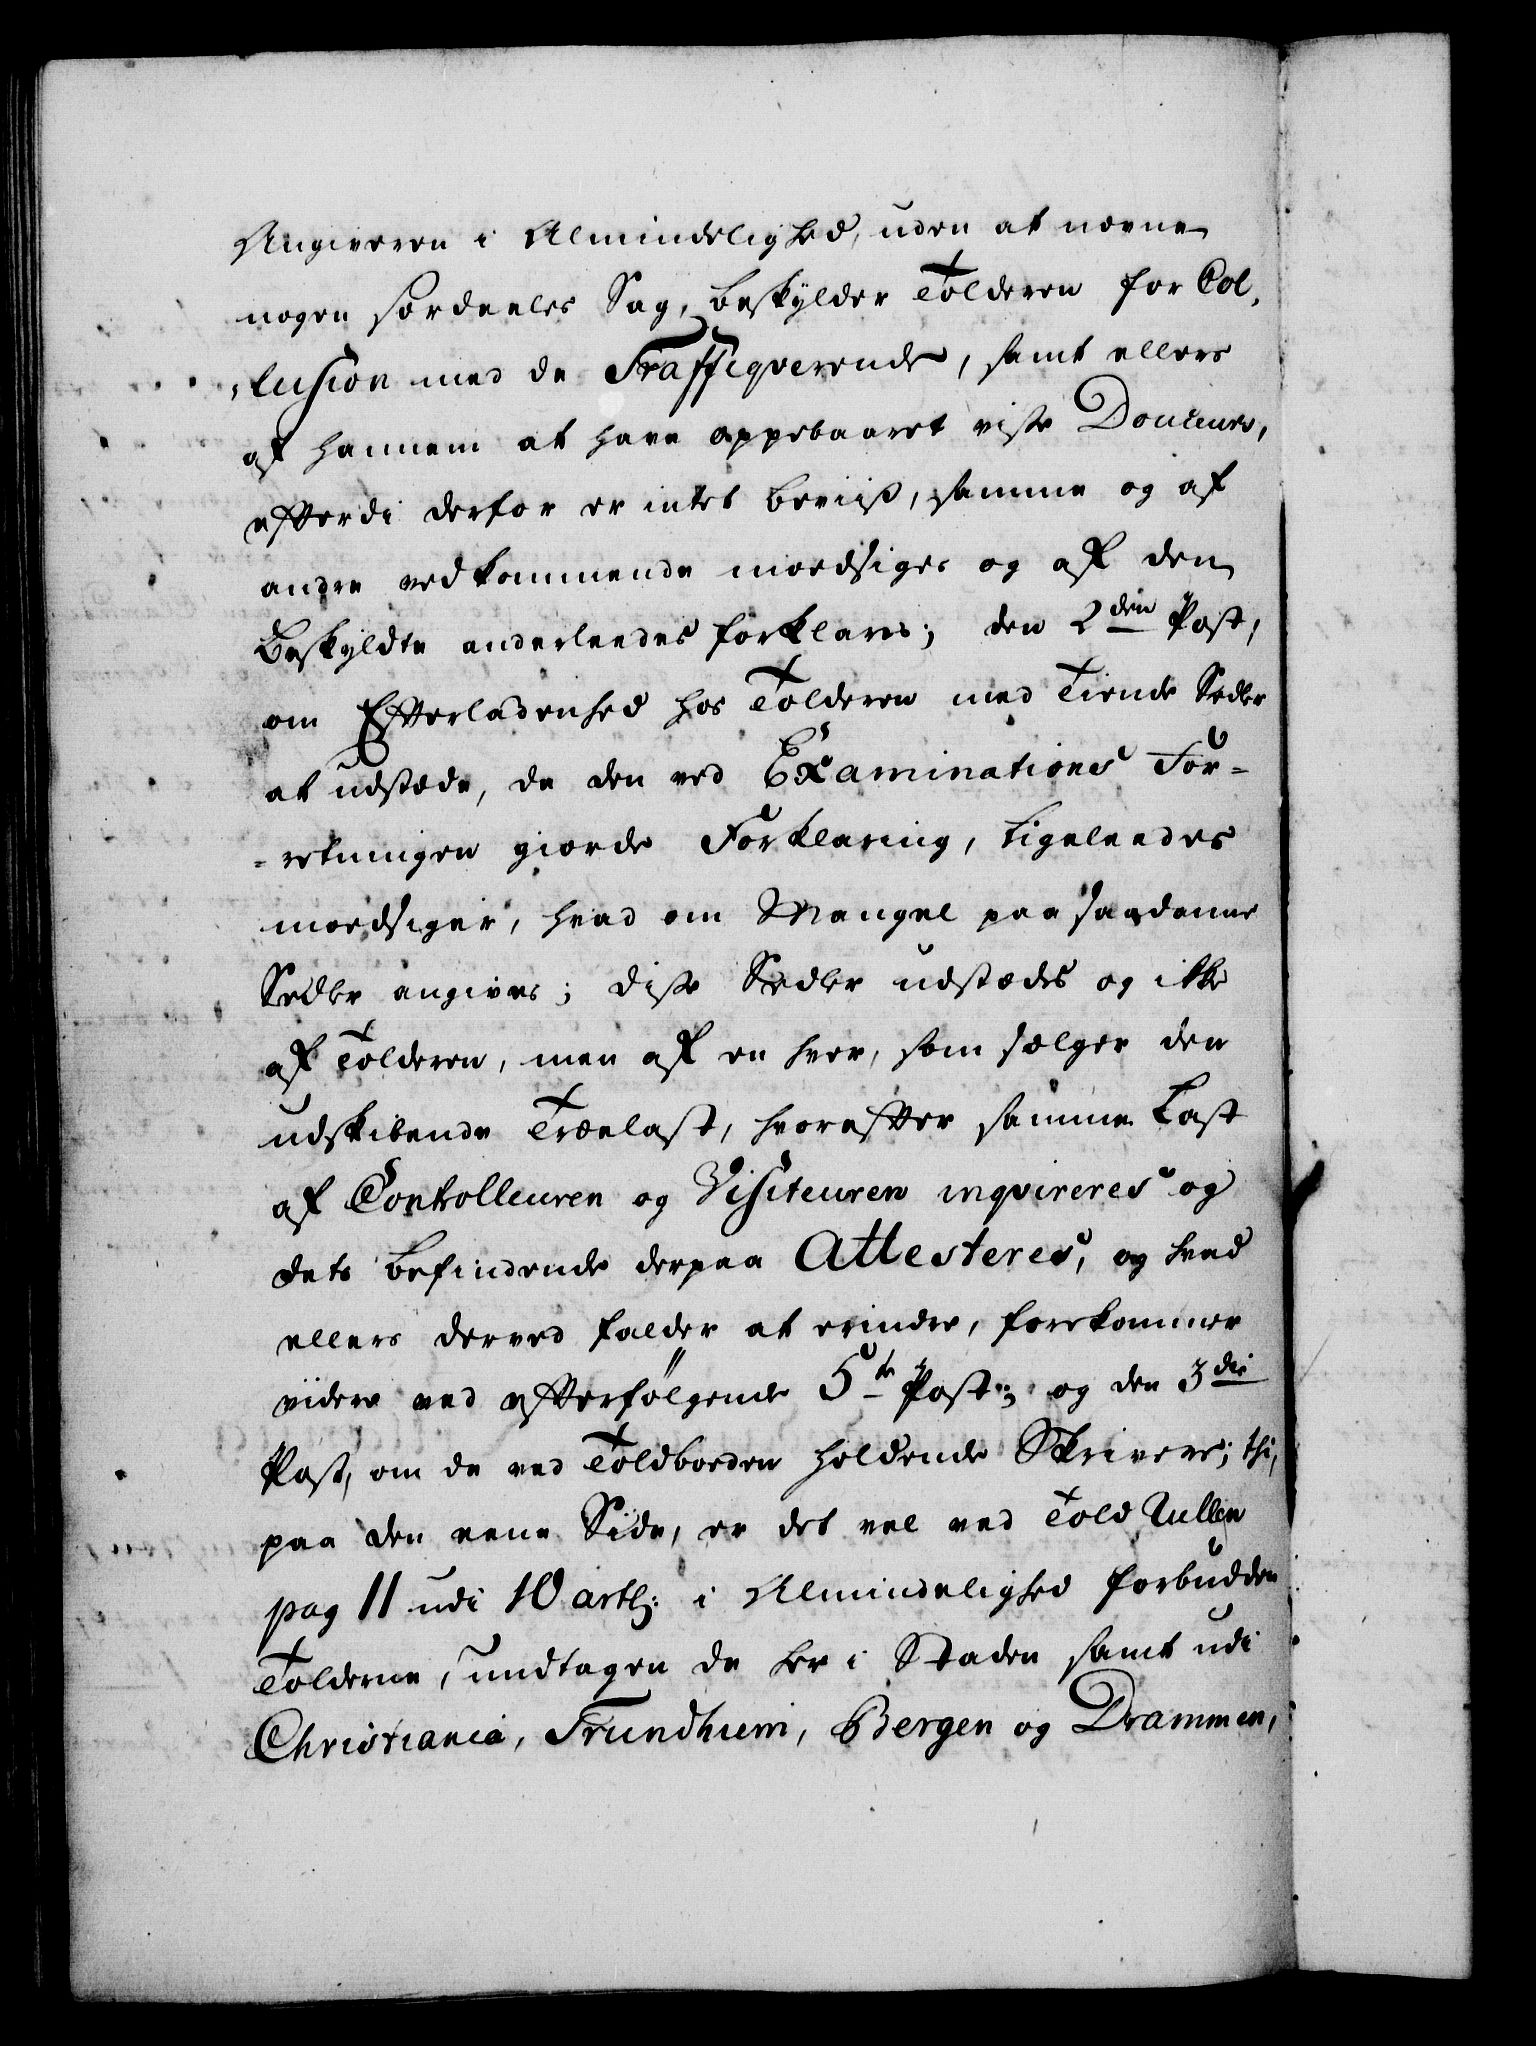 Angiveren i Almindelighed, uden at nævne
nogen særdeeles Sag, beskylder Tolderen for Col,
,lusion med de Traffiqverende, samt ellers
af hannem at have oppebaaret visse Douceurs,
efterdi derfor er intet beviis, samme og af
andre vedkommende modsiges og af den
Beskyldte anderleedes forklares; den 2den Post,
om Efterladenhed hos Tolderen med Tiende Sedler
at udstæde, da den ved Examinations For=
=retningen giorde Forklaring, ligeleedes
modsiger, hvad om Mangel paa saadanne
Sedler angives; disse Sedler udstædes og ikke
af Tolderen, men af en hver, som sælger den
udskibende Trælast, hvorefter samme Last
af Contolleuren og Visiteuren inqvireres og
dets befindende derpaa Attesteres, og hvad
ellers derved falder at erindre, forekommer
viidere ved efterfølgende 5te Post; og den 3die
Post, om de ved Toldboeden holdende Skrivere; thi,
paa den eene Side, er det vel ved Told Rullen
pag 11 udi 10 artl: i Almindelighed forbudden
Tolderne, undtagen de her i Staden samt udi
Christiania, Trundhiem, Bergen og Drammen,